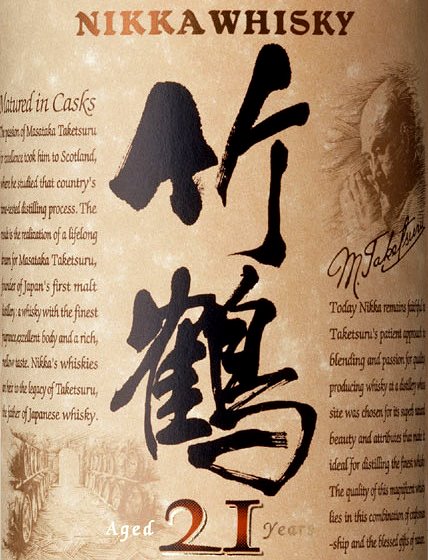 NIKKA WHISKY
竹鶴
Matured in Casks
The passion of Masataka Taketsuru
for excellence took him to Scotland,
where he studied that country's
time-tested distilling process. The
result is the realization of a lifelong
dream for Masataka Taketsuru,
founder of Japan's first malt
distillery: a whisky with the finest
fragrance, excellent body and a rich,
mellow taste. Nikka's whiskies
are heir to the legacy of Taketsuru,
the father of Japanese whisky.
M. Taketsuru
Today Nikka remains faithful to
Taketsuru's patient approach to
blending and passion for quality,
producing whisky at a distillery whose
site was chosen for its superb natural
beauty and attributes that make it
ideal for distilling the finest whisky.
The quality of this magnificent whisky
lies in this combination of craftsman
-ship and the blessed gifts of nature.
Aged 21 Years